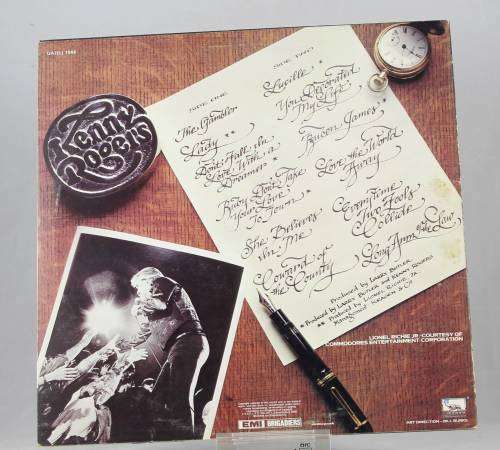 Kenny
Rogers
SIDE ONE
The Gambler
Lady **
Don't Fall In
Love With a
Dreamer *
Ruby Don't Take
Your Love
To Town *
She Believes
In Me
Coward of
the County
SIDE TWO
Lucille
You Decorated
My Life
Reuben James *
Love the World
Away
Everytime
Two Fools
Collide
Long Arm of the Law
Produced by LARRY BUTLER
* Produced by LARRY BUTLER and KENNY ROGERS
** Produced by LIONEL RICHIE, JR.
MANAGEMENT KRAGEN & CO
LIONEL RICHIE JR COURTESY OF
COMMODORES ENTERTAINMENT CORPORATION
EMI BRIGADIERS
ART DIRECTION - BILL BURKS